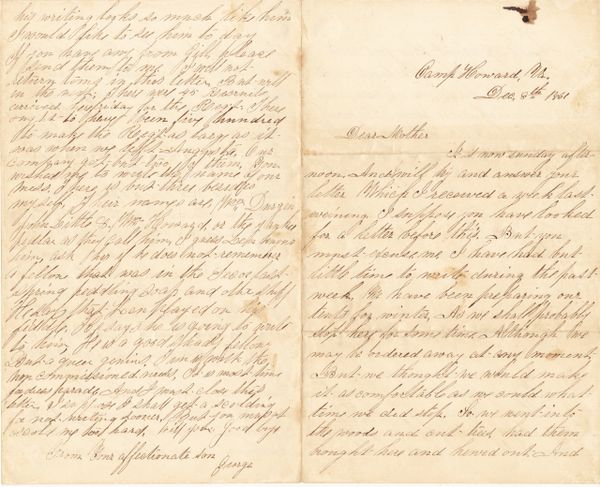 Camp Howard, Va.
Dec. 8th 1861
Dear Mother
It is now sunday after
noon. And I will try and answer your
letter Which I received a week last
evening I suppose you have looked
for a letter before this. But you
must excuse me I have had but
little time to write during the past
week. We have been preparing our
tents for winter. As we shall probably
stop here for some time. Although We
may be ordered away at any moment.
But we thought we would make
it as comfortable as we could what
time we did stop. So we went into
the woods and cut had them
brought here and hewed out. And
his writing looks so much like him
I would like to see him to day
If you have any from Gill please
send them to me. I will not
return to in this letter. But will
in the next. There were 45 Recruits
arrived for the Regt. There
ought to have been five hundred
to make the Regt as large as it
was when we left Augusta. Our
company got but two of them. You
wished me to write the names of our
mess. There is but three besides
myself. Their names are, Wm.
John Little & Wm. Howard, or the
pedlar as they call him. I guess knows
him, ask him if he does not remember
a fellow that was in the last
spring peddling soap and other stuff
He says that been played on the
fiddle. He says he is going to write
to him. He is a good hearted fellow
But a queer genius. I now
non commissioned mess, It is most time
for dress parade, And I must close this
letter. I suppose I shall get a scolding
for not writing sooner. But you must
scold me too hard. Good bye
From Your affectionate son
George